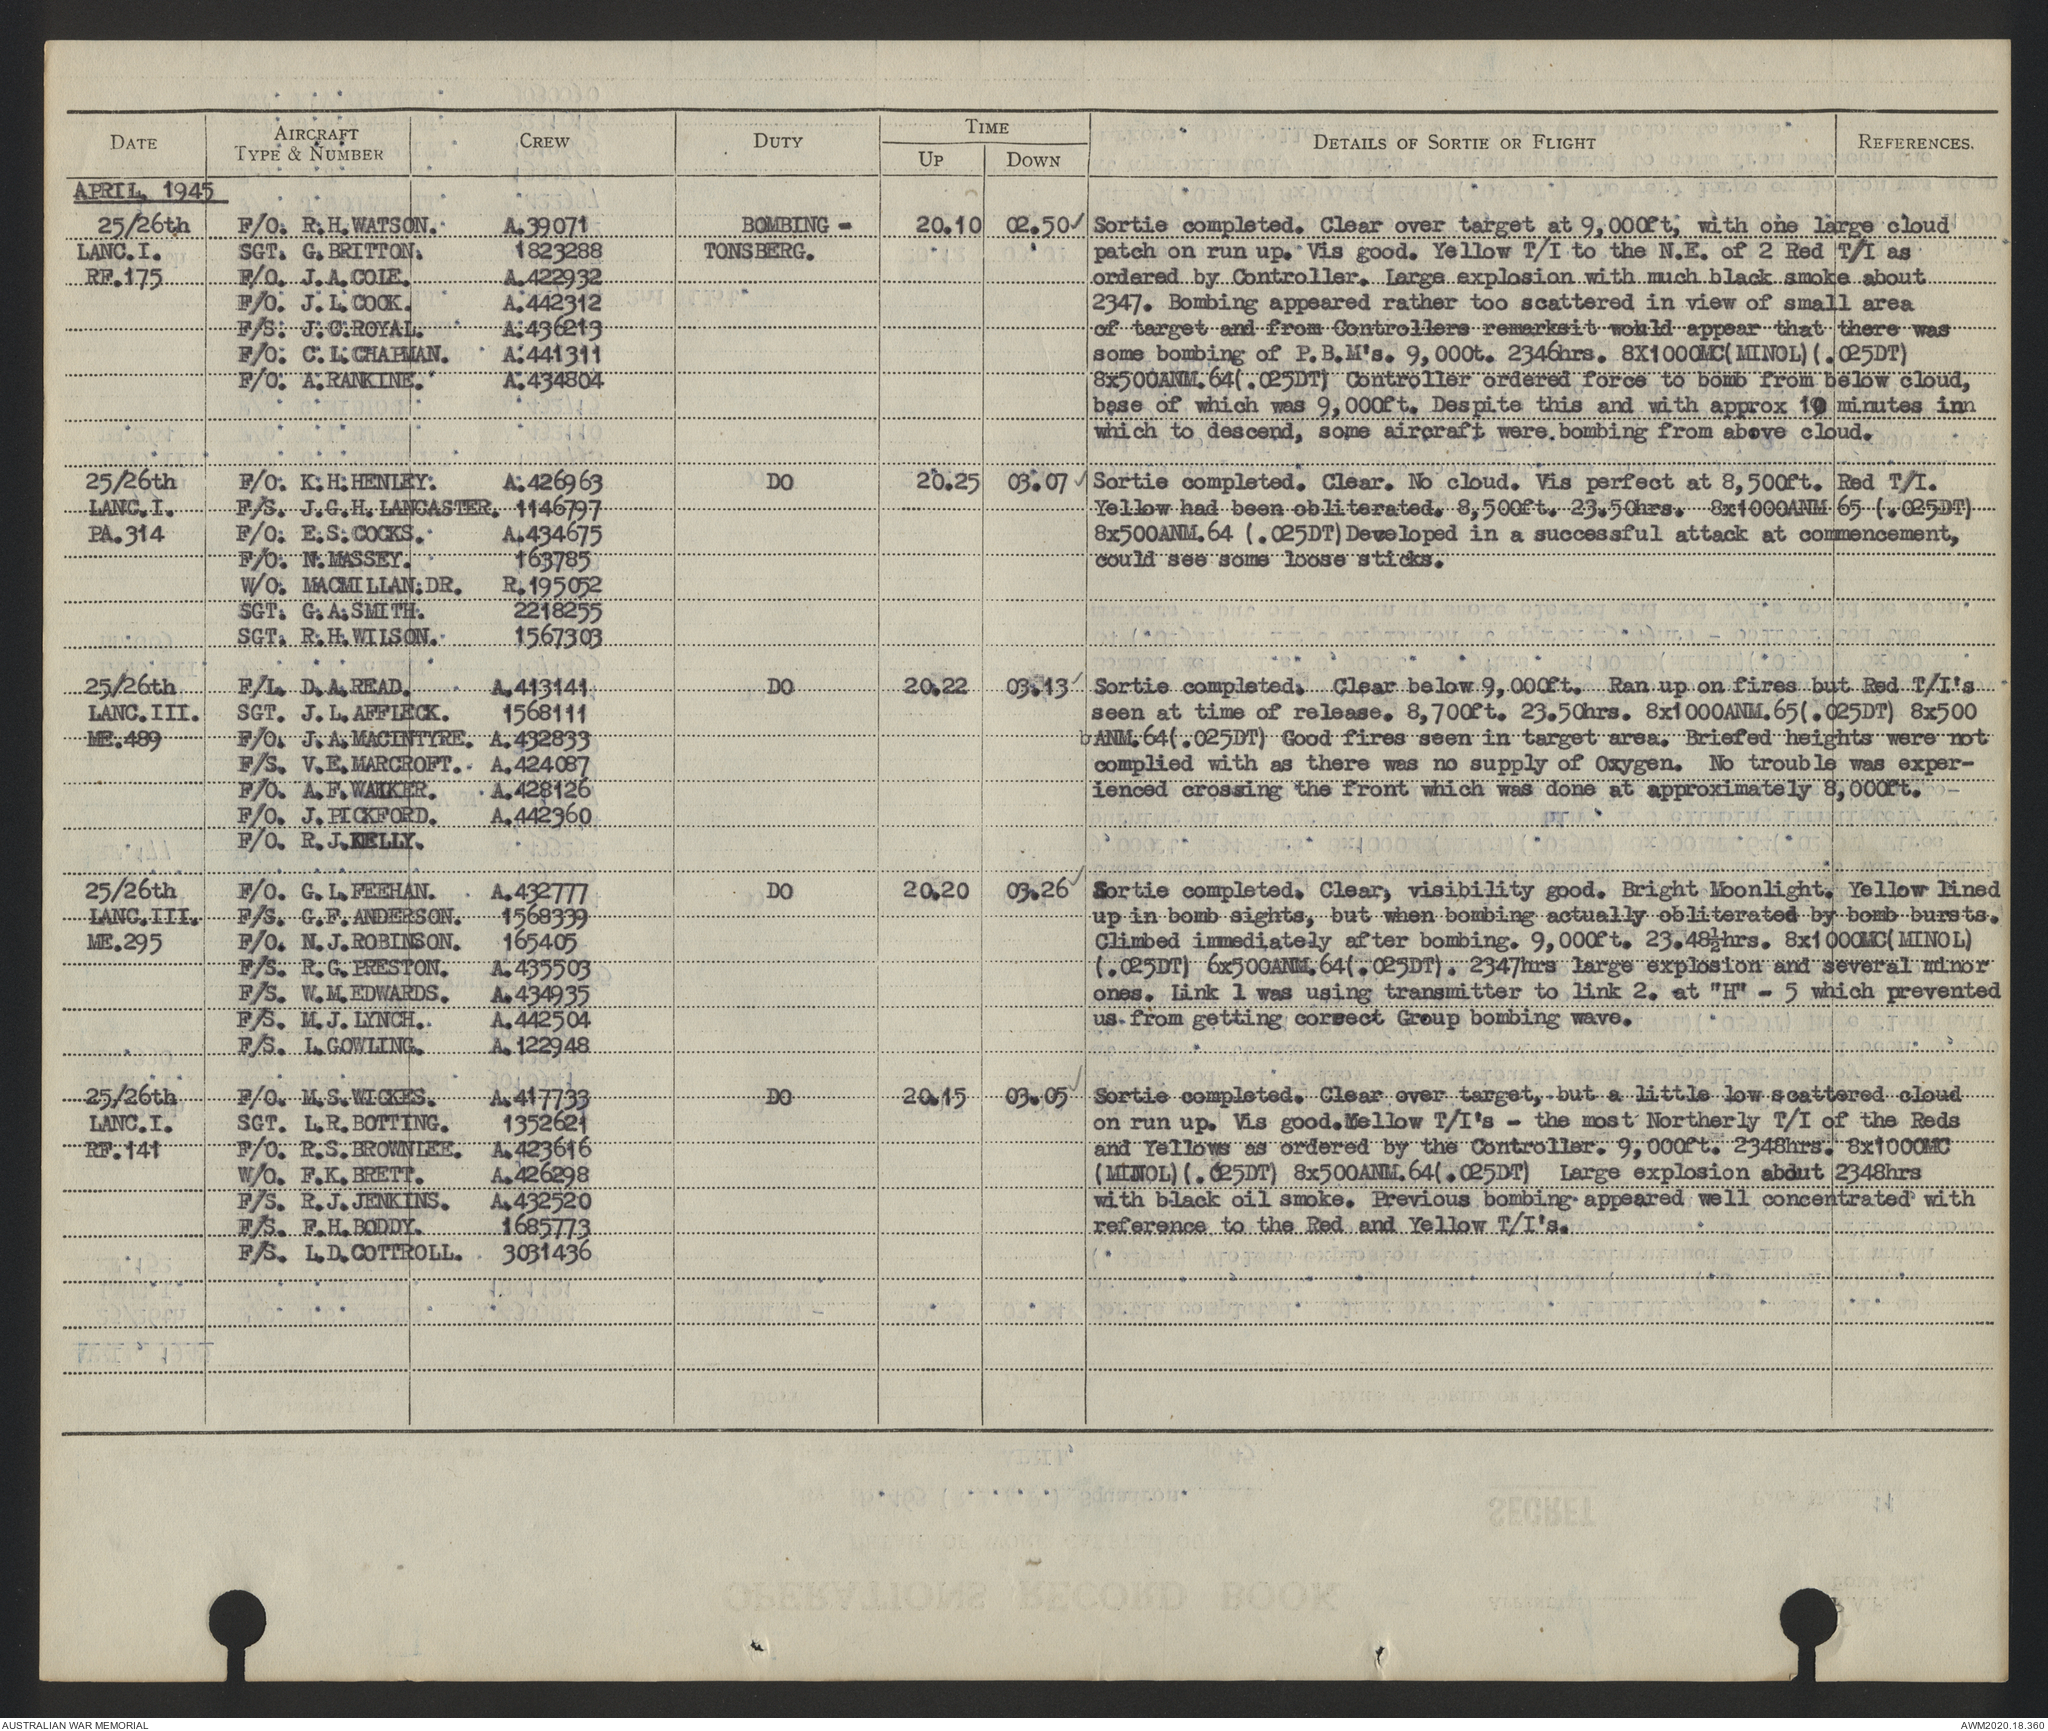 DATE AIRCRAFT TYPE & NUMBER CREW DUTY TIME UP DOWN DETAILS OF SORTIE OR FLIGHT REFERENCES.
APRIL, 1945
25/26th F/O. R.H.WATSON. A.39071 BOMBING - 20.10 02.50 Sortie completed. Clear over target at 9,000ft, with one large cloud
LANC.I. SGT. G.BRITTON. 1823288 TONSBERG. patch on run up. Vis good. Yellow T/I to the N.E. of 2 Red T/I as
RF.175 F/O. J.A.COLE. A.422932 ordered by Controller. Large explosion with much black smoke about
F/O. J.L.COCK. A.442312 2347. Bombing appeared rather too scattered in view of small area
F/S. J.C.ROYAL. A.436213 of target and from Controllers remarksit would appear that there was
F/O. C.L.CHAPMAN. A.441311 some bombing of P.B.M's. 9,000t. 2346hrs. 8X1000MC(MINOL)(.025DT)
F/O. A.RANKINE. A.434804 8x500ANM.64(.025DT) Controller ordered force to bomb from below cloud,
base of which was 9,000ft. Despite this and with approx 10 minutes inn
which to descend, some aircraft were.bombing from above cloud.
25/26th F/O. K.H.HENLEY. A.426963 DO 20.25 03.07 Sortie completed. Clear. No cloud. Vis perfect at 8,500ft. Red T/I.
LANC.I. F/S. J.G.H.LANCASTER. 1146797 Yellow had been obliterated. 8,500ft. 23.50hrs. 8x1000ANM 65 (.025DT)
PA.314 F/O. E.S.COCKS. A.434675 8x500ANM.64 (.025DT)Developed in a successful attack at commencement,
F/O. N.MASSEY. 163785 could see some loose sticks.
W/O. MACMILLAN.DR. R.195052
SGT. G.A.SMITH. 2218255
SGT. R.H.WILSON. 1567303
25/26th F/L. D.A.READ. A.413141 DO 20.22 03.13 Sortie completed. Clear below 9,000ft. Ran up on fires but Red T/I's
LANC.III. SGT. J.L.AFFLECK. 1568111 seen at time of release. 8,700ft. 23.50hrs. 8x1000ANM.65(.025DT) 8x500
ME.489 F/O. J.A.MACINTYRE. A.432833 ANM.64(.025DT) Good fires seen in target area. Briefed heights were not
F/S. V.E.MARCROFT. A.424087 complied with as there was no supply of Oxygen. No trouble was exper-
F/O. A.F.WALKER. A.428126 ienced crossing the front which was done at approximately 8,000ft.
F/O. J.PICKFORD. A.442360
F/O. R.J.KELLY.
25/26th F/O. G.L.FEEHAN. A.432777 DO 20.20 03.26 Sortie completed. Clear, visibility good. Bright Moonlight. Yellow lined
LANC.III. F/S. G.F.ANDERSON. 1568339 up in bomb sights, but when bombing actually obliterated by bomb bursts.
ME.295 F/O. N.J.ROBINSON. 165405 Climbed immediately after bombing. 9,000ft. 23.48½hrs. 8x1000MC(MINOL)
F/S. R.G.PRESTON. A.435503 (.025DT) 6x500ANM.64(.025DT). 2347hrs large explosion and several minor
F/S. W.M.EDWARDS. A.434935 ones. Link 1 was using transmitter to link 2. at "H" - 5 which prevented
F/S. M.J.LYNCH. A.442504 us from getting correct Group bombing wave.
F/S. L.GOWLING. A.122948
25/26th F/O. M.S.WICKES. A.417733 DO 20.15 03.05 Sortie completed. Clear over target, but a little low scattered cloud
LANC.I. SGT. L.R.BOTTING. 1352621 on run up. Vis good.Yellow T/I's - the most Northerly T/I of the Reds
RF.141 F/O. R.S.BROWNLEE. A.423616 and Yellows as ordered by the Controller. 9,000ft. 2348hrs. 8x1000MC
W/O. F.K.BRETT. A.426298 (MINOL)(.025DT) 8x500ANM.64(.025DT) Large explosion about 2348hrs
F/S. R.J.JENKINS. A.432520 with black oil smoke. Previous bombing appeared well concentrated with
F/S. F.H.BODDY. 1685773 reference to the Red and Yellow T/I's.
F/S. L.D.COTTROLL. 3031436
AUSTRALIAN WAR MEMORIAL AWM2020.18.360